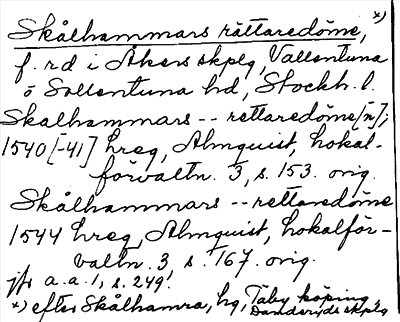 Skålhammars rättaredöme, x)
f. rd i Åkers skplg, Vallentuna
o Sollentuna hd, Stockh. l.
Skalhammars -- rettaredöme[n];
1540[-41] hreg, Almquist, Lokal-
förvaltn. 3, s. 153. orig.
Skålhammars -- rettaredöme
1544 hreg, Almquist, Lokalför-
valtn. 3 s. 167. orig.
jfr a.a. 1, s. 249!
x) efter Skålhamra, hg, Täby köping,
Danderyds skplg